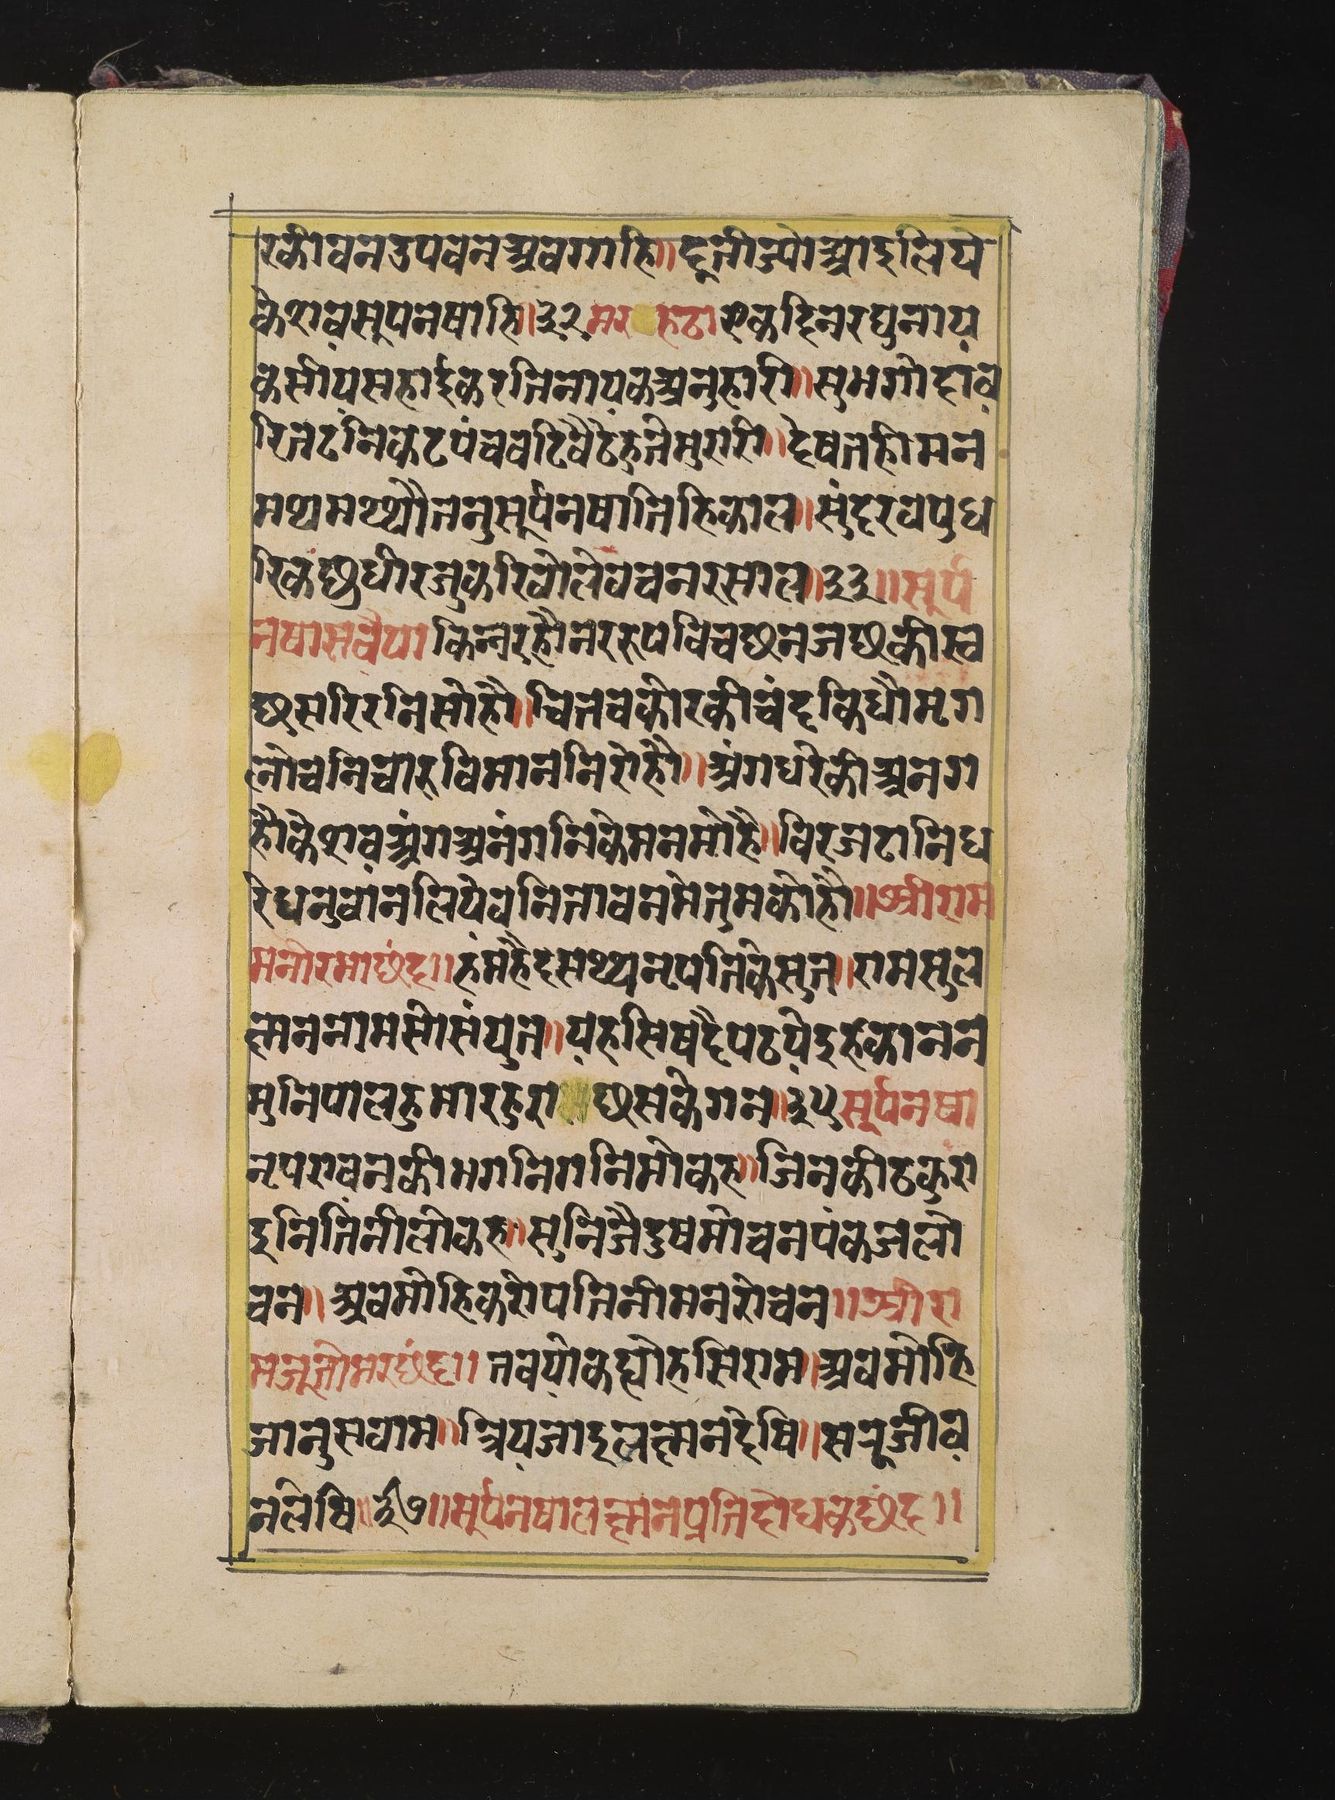 रकीवनउपवनअवगाहि॥दूतीज्योआइलिये
केशवसूपनषाहि॥३२मरहठाएकदिनरघुनाय
कसीयसहाईकरतिनायकअनुहारी॥सुभगोदाव
रितटनिकटपंचवटिबैठेहुतेमुरारी॥देषतहीमन
मथमथ्थ्यौतनुसूर्पनषातिहिकाल॥सुंदरवपुध
रिकछुधीरजुकरिबोलेवचनरसाल॥३३॥सूर्प
नषासवैया किन्नरहौनररुपविचछनजछकीस्व
छसरिरनिसोहौ॥चितचकोरकीचंदकिधौमृग
लोचनिचारुविमाननिरोहौ॥अंगधरेकीअनग
हौकेशवअंगअनंगनिकेमनमोहै॥विरजटानिध
रेधनुबांनलियेवनितावनमेतुमकोहौ॥श्रीराम
मनोरमाछंद॥हंमहैदसथ्थनृपतिकेसुत॥रामसुल
त्मननामसोसंयुत॥यहसिषदैपठयेइहकानन
मुनिपालहुमारहुराछसकेगन॥३५सूर्पनषा
नृपरावनकीभगनिगनिमोकह॥जिनकीठकुरा
इनितिंनीलोकह॥सुनिजैदुषमोचनपंकजलो
चन॥अबमोहिकरोपतिनीमनरोचन॥श्रीरा
मजूतोमरछंद॥तबयोकह्योहसिराम॥अबमोहि
जानुसवाम॥त्रियजाइलत्मनदेषि॥समूजीव
नलेषि॥३७॥सूर्पनषालत्मनप्रतिदोधकछंद॥